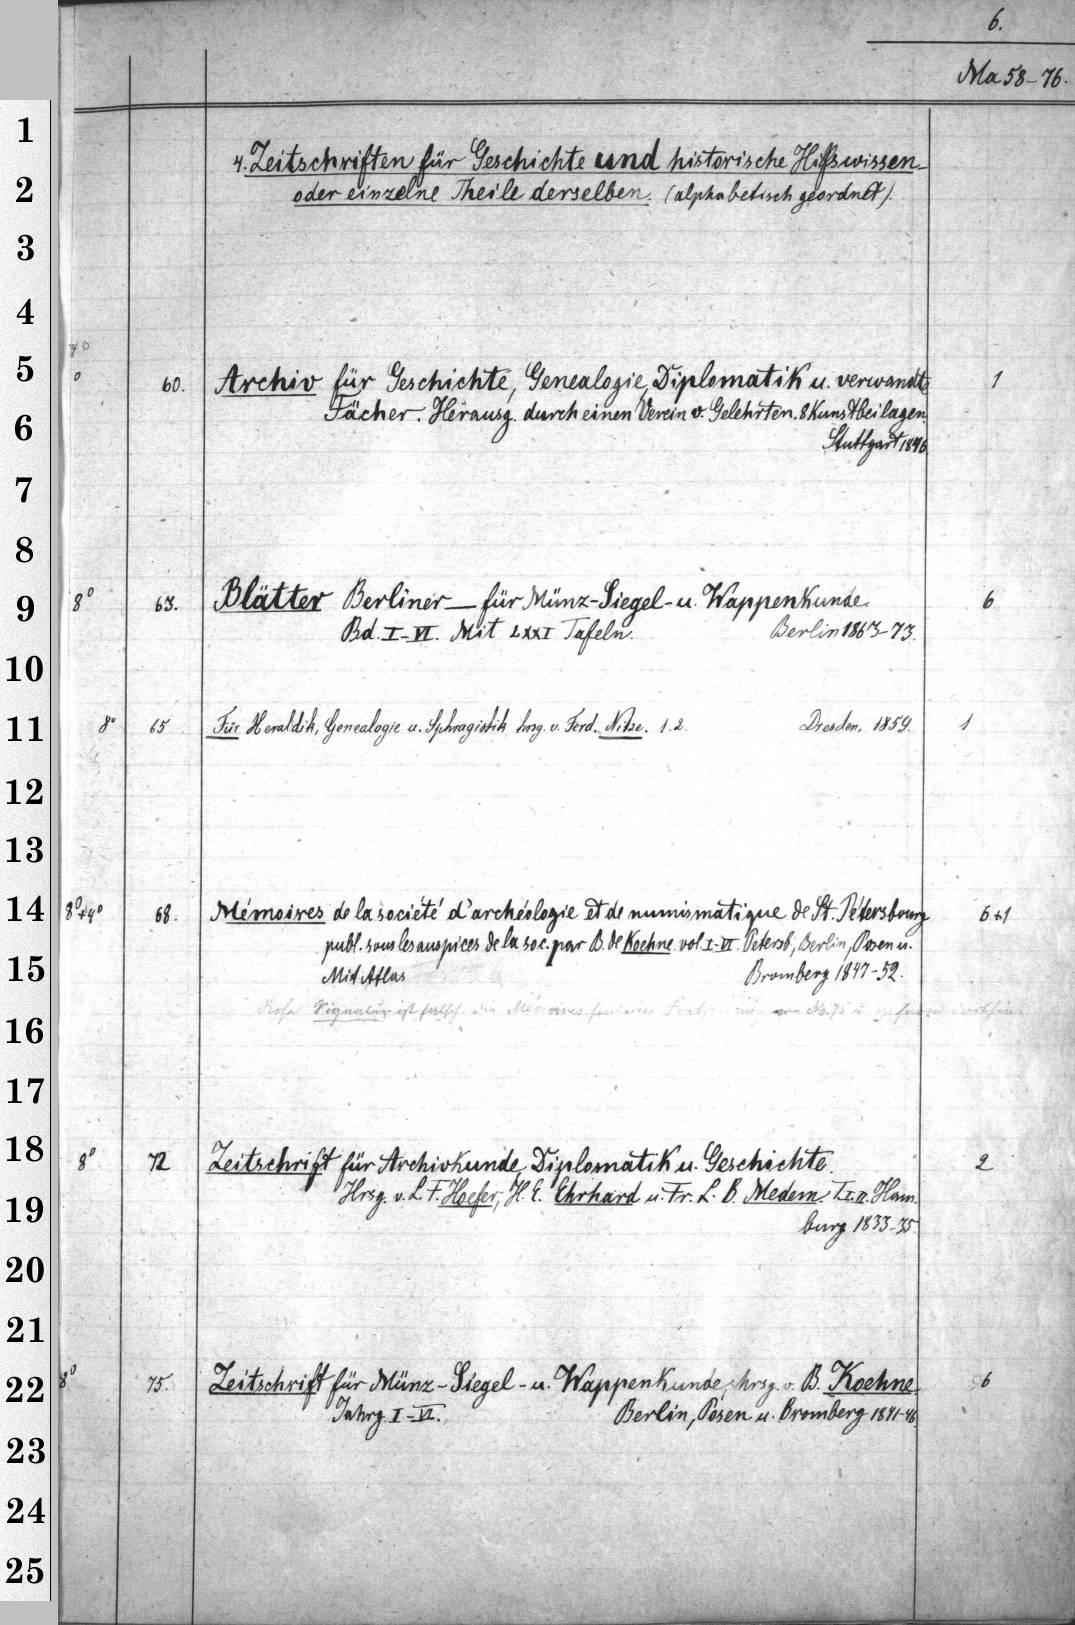 6.
Ma 58-76.
1
4. Zeitschriften für Geschichte und historische Hilfswissen-
2
oder einzelne Theile derselben. (alphabetisch geordnet).
3
4
5
0 60. Archiv für Geschichte, Genealogie, Diplomatik u. verwandte 1
6
Fächer. Herausg. durch einen Verein v. Gelehrten. 8 Kunstbeilagen.
Stuttgart 1846
7
8
9
8° 63. Blätter Berliner — für Münz-Siegel- u. Wappenkunde. 6
Bd. I-VI. Mit LXXI Tafeln. Berlin 1863-73.
10
11
8° 65 Für Heraldik, Genealogie u. Sphragistik hrsg. v. Ferd. Nitze. 1.2. Dresden, 1859. 1
12
13
14
8°+4° 68. Mémoires de la société d'archéologie et de numismatique de St. Pétersbourg 6+1
publ. sous les auspices de la soc. par B. de Koehne vol. I-VI. Petersb., Berlin, Posen u.
15
Mit Atlas Bromberg 1847-52.
Signatur ist falsch. die Mémoires von No. 75 u.
16
17
18
8° 72 Zeitschrift für Archivkunde, Diplomatik u. Geschichte. 2
19
Hrsg. v. L. F. Hoefer, H. E. Ehrhard u. Fr. L. B. Medem. T. I. II. Ham-
burg 1833-35.
20
21
22
8° 75. Zeitschrift für Münz-Siegel- u. Wappenkunde, hrsg. v. B. Koehne. 6
Jahrg. I-VI. Berlin, Posen u. Bromberg 1841-46.
23
24
25